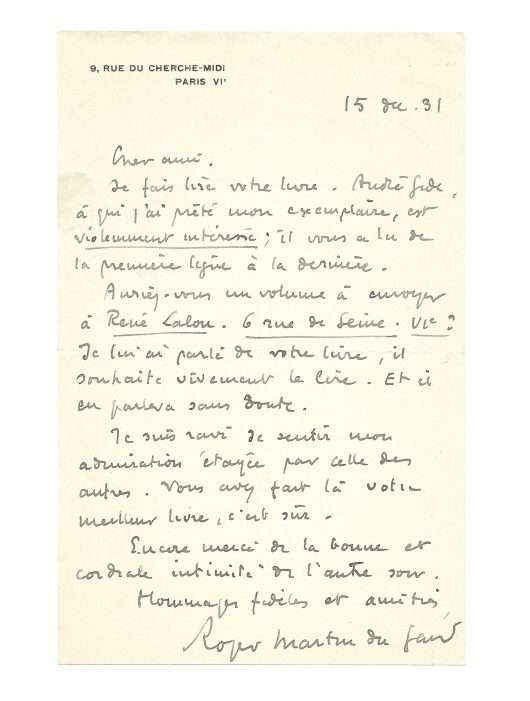 9, RUE DU CHERCHE-MIDI
PARIS VIᵉ
15 déc. 31
Cher ami.
Je fais lire votre livre. André Gide,
à qui j'ai prêté mon exemplaire, est
violemment intéressé ; il vous a lu de
la première ligne à la dernière.
Auriez-vous un volume à envoyer
à René Lalou. 6 rue de Seine. VIᵉ ?
Je lui ai parlé de votre livre, il
souhaite vivement le lire. Et il
en parlera sans doute.
Je suis ravi de sentir mon
admiration étayée par celle des
autres. Vous avez fait là votre
meilleur livre, c'est sûr.
Encore merci de la bonne et
cordiale intimité de l'autre soir.
Hommages fidèles et amitiés
Roger Martin du Gard